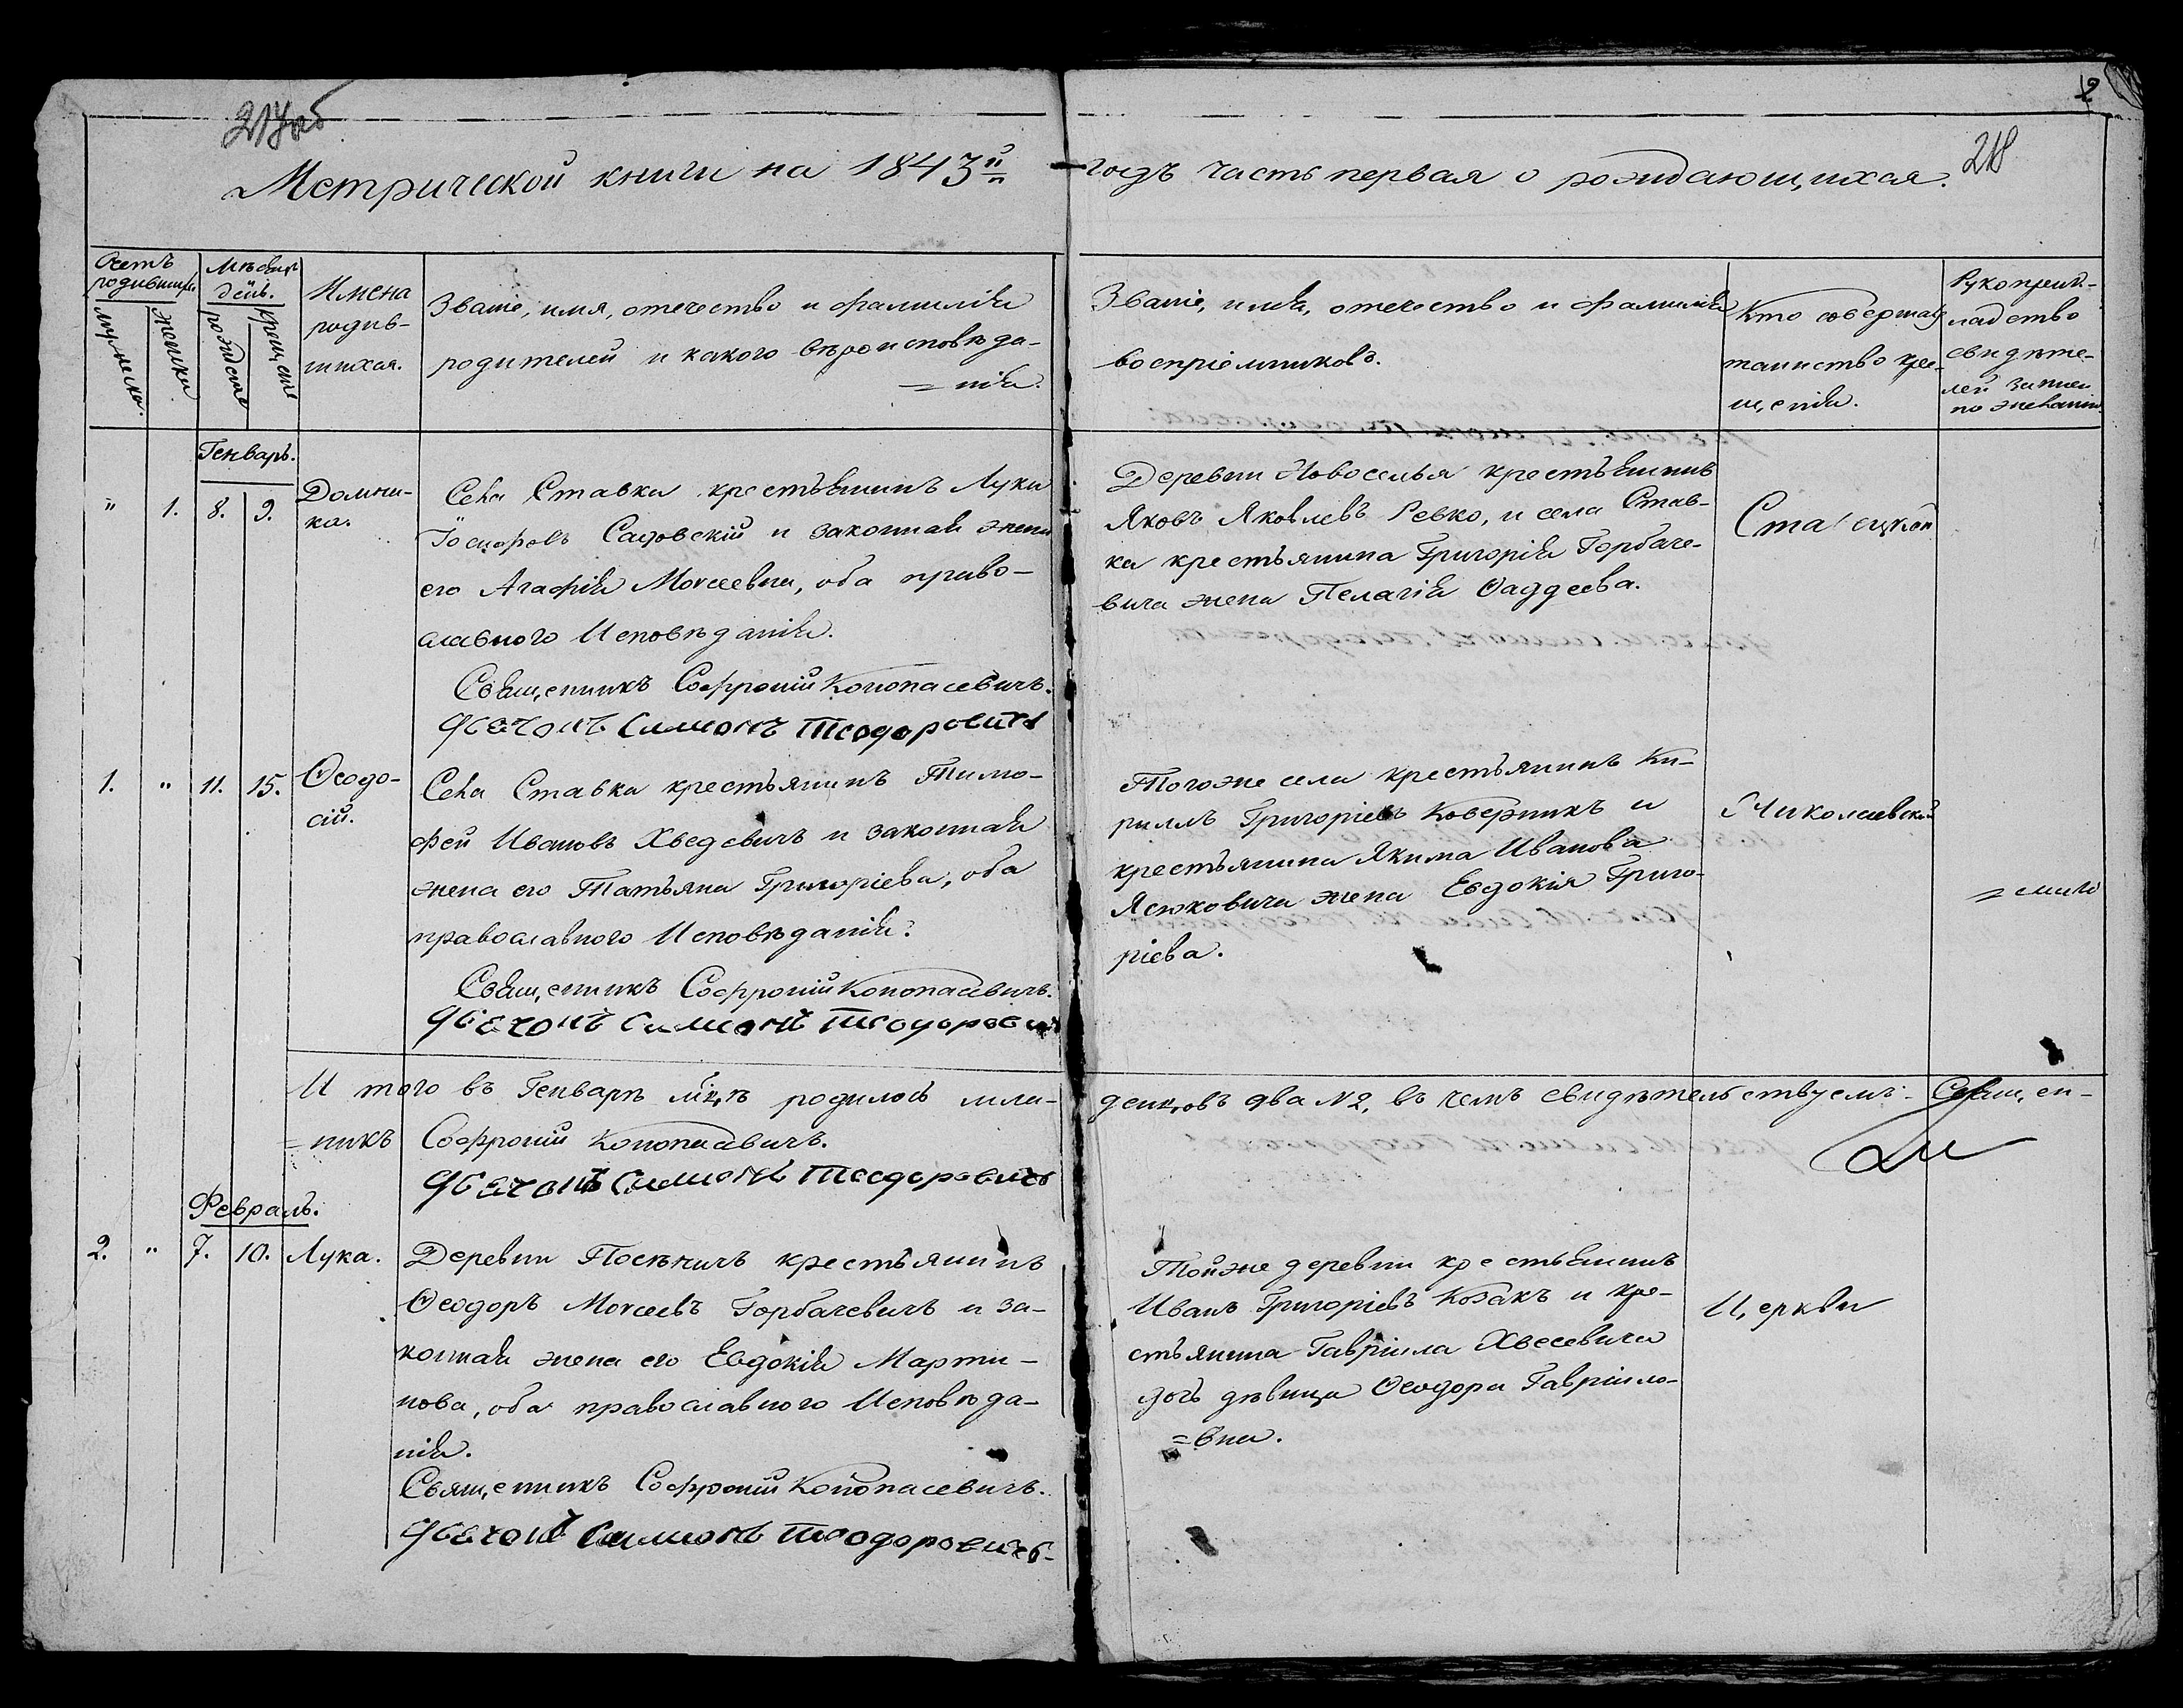 217об
2
218
Метрической книги на 1843й годъ часть первая о рождающихся.
Счетъ родившихся
мужеска.
женска
Мѣсяцъ день.
рожденіе
крещеніе
Имена
родив-
шихся.
Званіе, имя, отечество и фамилія
родителей и какого вѣроисповѣда-
=нія.
Званіе, имя, отечество и фамилія
воспріемниковъ.
Кто совершалъ
таинство кре-
щенія.
Рукоприк-
ладство
свидѣте-
лей записи
по желанію
Генварь.
" 1. 8. 9.
Домни-
ка.
Села Ставка крестьянинъ Лука
Іосифовъ Садовскій и законная жена
его Агафія Моисеевна, оба право-
славного Исповѣданія.
Священникъ Софроній Конопасевичъ.
Дьячокъ Симонъ Теодоровичъ
Деревни Новоселья крестьянинъ
Яковъ Яковлевъ Ревко, и села Став-
ка крестьянина Григорія Горбаче-
вича жена Пелагія Ѳаддеева.
Ставецкой
1. " 11. 15.
Ѳеодо-
сій.
Села Ставка крестьянинъ Тимо-
фей Ивановъ Хведевичъ и законная
жена его Татьяна Григоріева, оба
православного Исповѣданія.
Священникъ Софроній Конопасевичъ.
Дьячокъ Симонъ Теодоровичъ
Тогоже села крестьянинъ Ки-
риллъ Григоріевъ Коверникъ и
крестьянина Якима Иванова
Ясюковича жена Евдокія Григо-
ріева.
Николаевской
И того въ Генварѣ мцѣ родилось мла-
денцовъ два №2, въ чемъ свидѣтельствуемъ: Священ-
=никъ Софроній Конопасевичъ.
Дьячокъ Симонъ Теодоровичъ
Февраль.
2. " 7. 10. Лука.
Деревни Посѣничъ крестьянинъ
Ѳеодоръ Моисеевъ Горбачевичъ и за-
конная жена его Евдокія Марти-
нова, оба православного Исповѣда-
нія.
Священникъ Софроній Конопасевичъ.
Дьячокъ Симонъ Теодоровичъ
Тойже деревни крестьянинъ
Иванъ Григоріевъ Козакъ и кре-
стьянина Гавріила Хвесевича
дочь дѣвица Ѳеодора Гавріило-
=вна.
Церкви